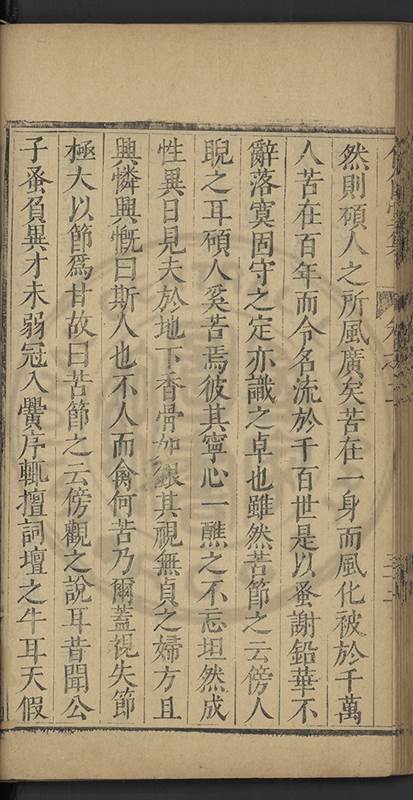 然則碩人之所風廣矣苦在一身而風化被於千萬
人苦在百年而令名流於千百世是以蚤謝鉛華不
辭落寞固守之定亦識之卓也雖然苦節之云傍人
睨之耳碩人奚苦焉彼其寧心一醮之不忘坦然成
性異日見夫於地下香骨如銀其視無貞之婦方且
興憐興慨曰斯人也不人而禽何苦乃爾蓋視失節
極大以節爲甘故曰苦節之云傍觀之說耳昔聞公
子蚤負異才未弱冠入黌序輒擅詞壇之牛耳天假